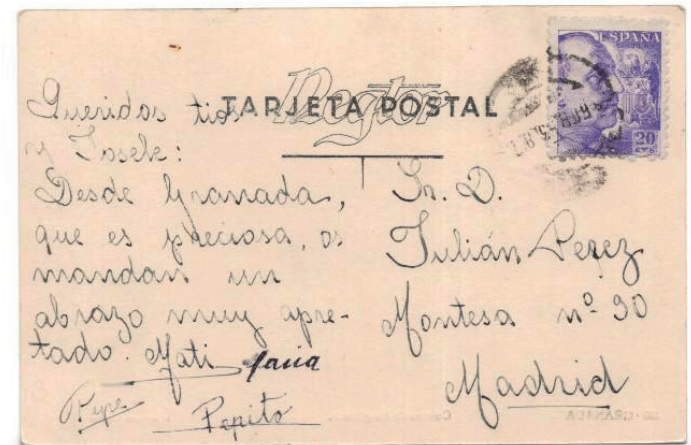 TARJETA POSTAL
ESPAÑA
20
CTS
Queridos tios
y Josele:
Desde Granada,
que es preciosa, os
mandan un
abrazo muy apre-
tado. Mati
Pepe
Pepito
Sr. D.
Julián Perez
Montesa nº 90
Madrid
GRANADA